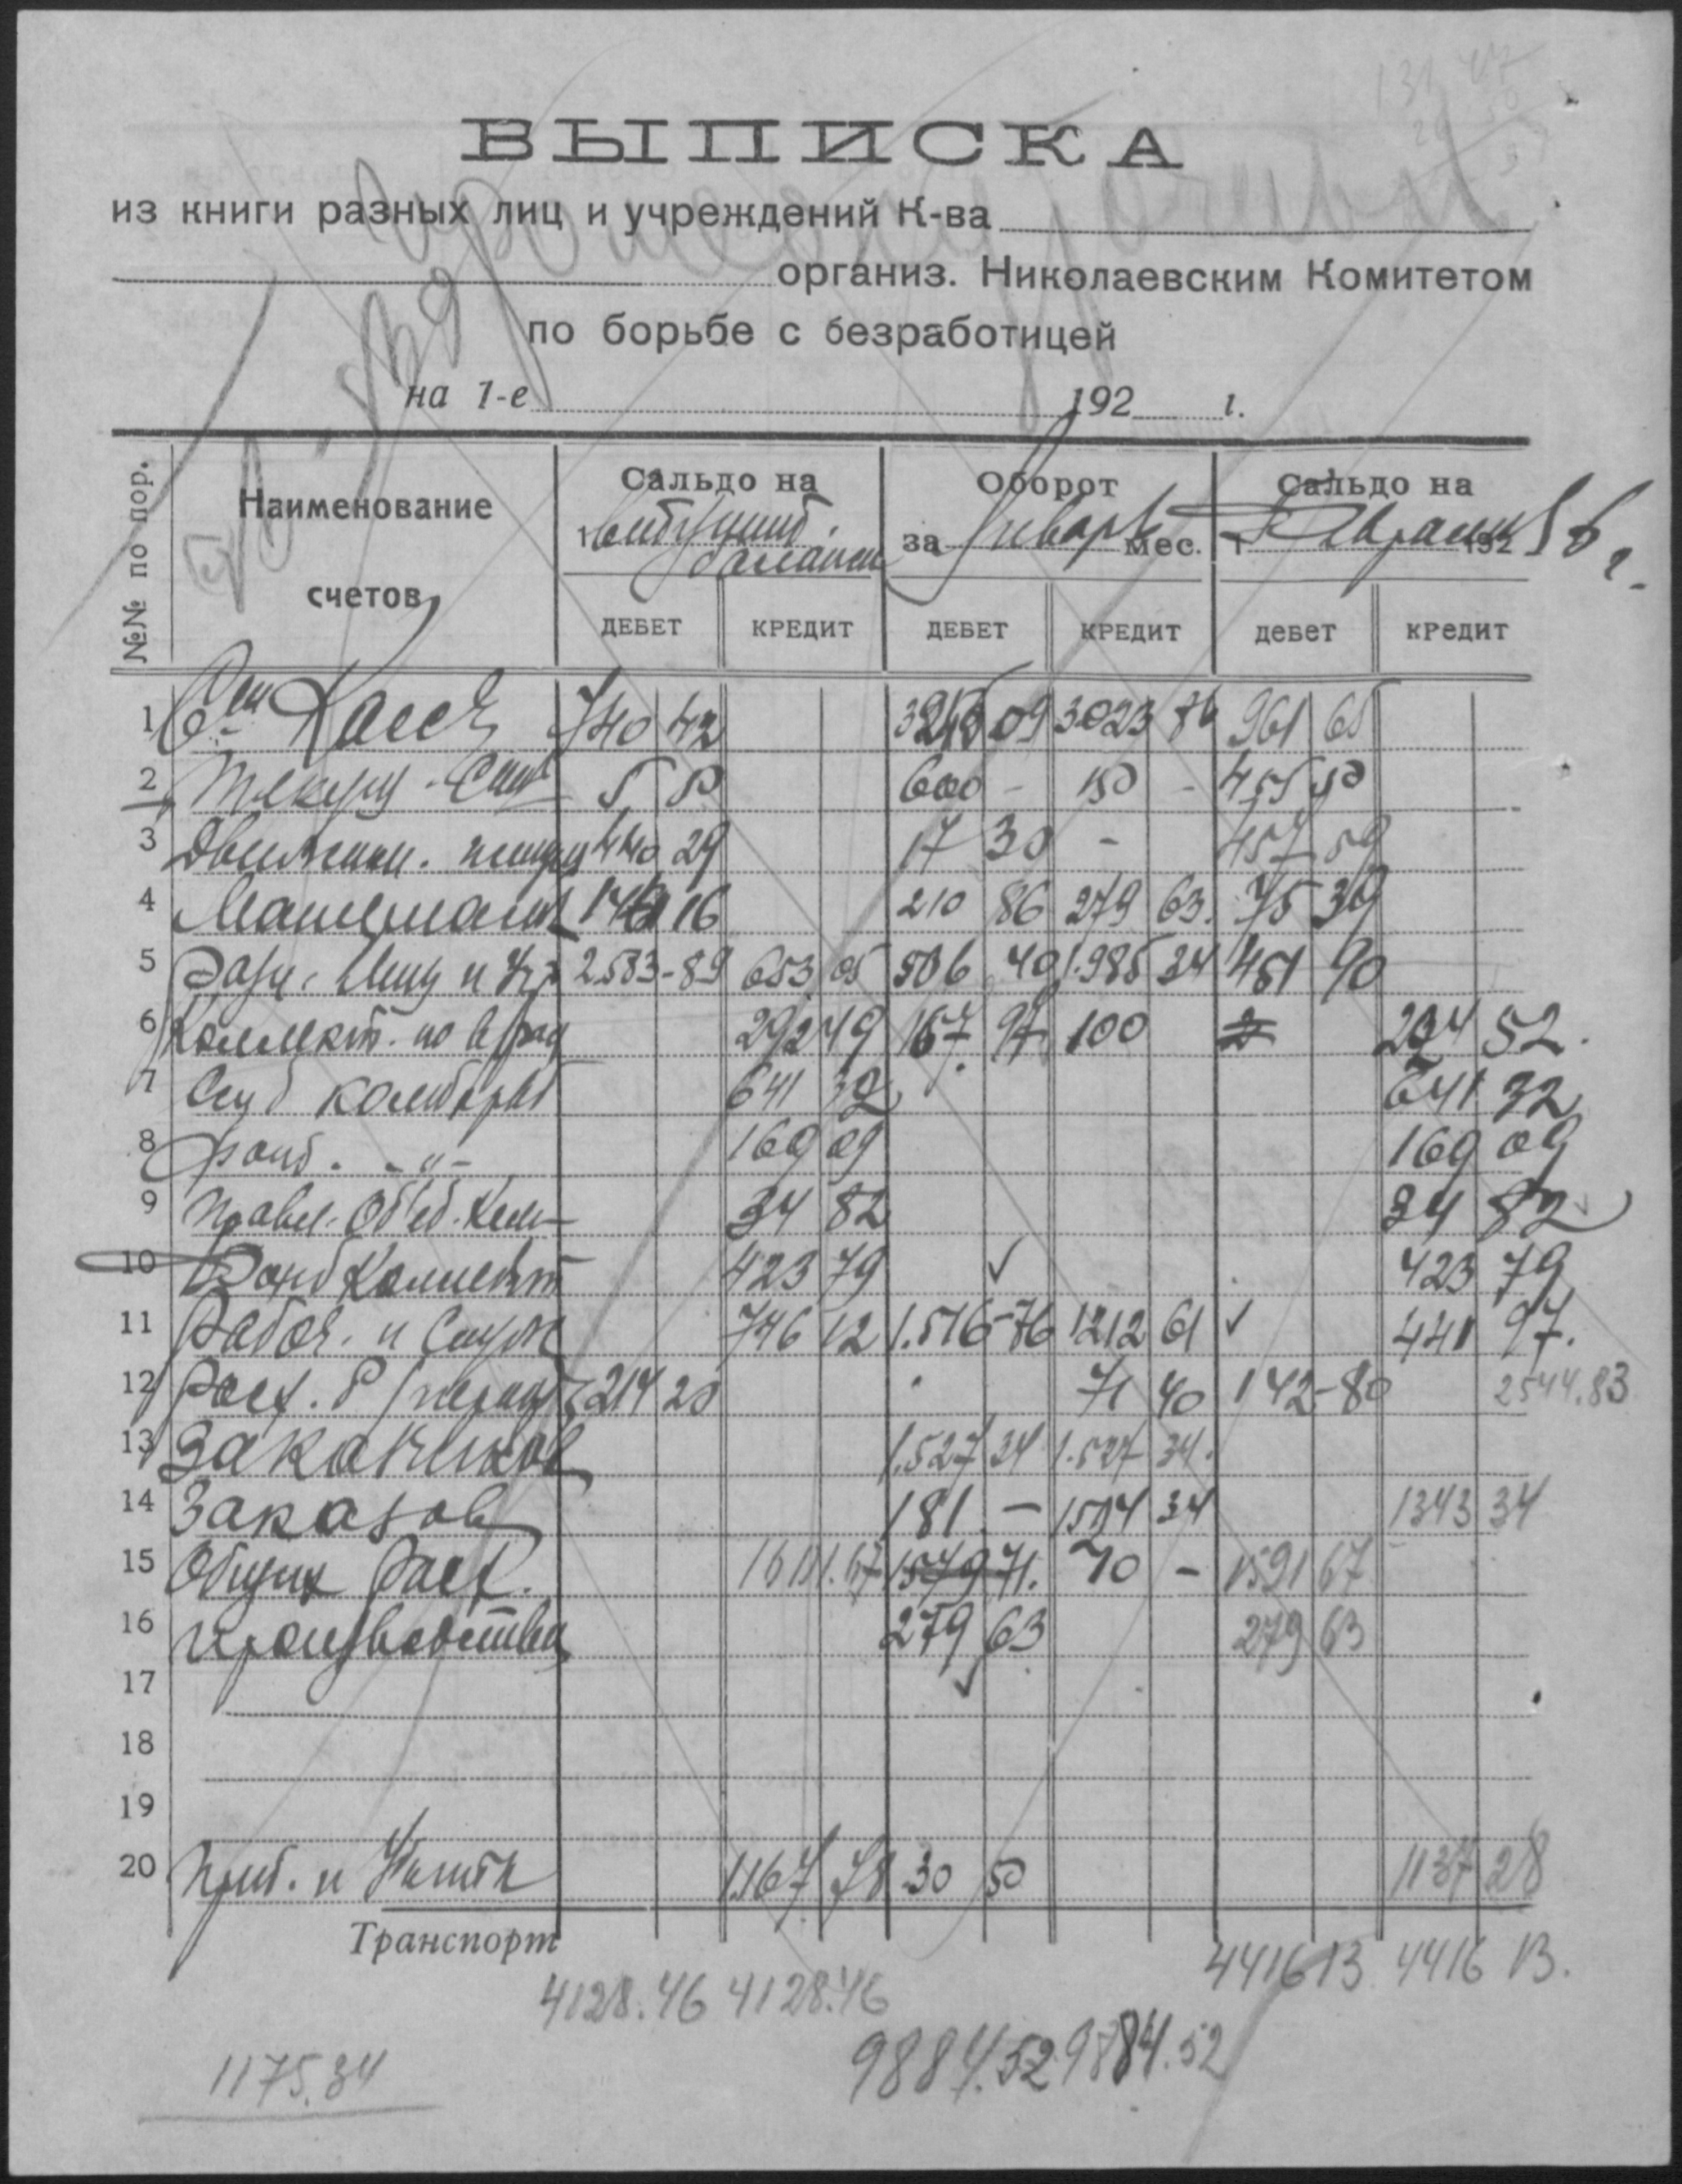 ВЫПИСКА
из книги разных лиц и учреждений К-ва
организ. Николаевским Комитетом
по борьбе с безработицей
на 1-е 192 г.
№№ по пор. Наименование счетов Сальдо на 1 Оборот за Январь мес. Сальдо на 1 Февраля 192 6 г.
ДЕБЕТ КРЕДИТ ДЕБЕТ КРЕДИТ ДЕБЕТ КРЕДИТ
1 Касса 740 42 3245 09 3023 86 961 65
2 Текущ. Счет 5 50 600 - 150 - 455 50
3 Движим. имущ 440 29 17 30 - 457 59
4 Материалы 144 16 210 86 279 63 75 39
5 Разн. Лиц и Уч 2583-89 653 05 506 40 1.985 34 451 90
6 Коллект. по 292 49 157 97 100 234 52.
7 641 32 641 32
8 Фонд. -"- 169 09 169 09
9 Правл. Об'ед. Кол 34 82 34 82
10 Фонд Коллект 423 79 423 79
11 Рабоч. и Служ 746 12 1.516-76 1212 61 441 97.
12 Расх. 214 20 71 40 142-80 2544.83
13 Заказчиков 1.527 34 1.527 34.
14 Заказов 181 - 1524 34 1343 34
15 Общих Расх. 1611.67 10 - 1591 67
16 Производства 279 63 279 63
17
18
19
20 Приб. и Убытк 1.167 78 30 50 1137 28
Транспорт
4416 13 4416 13.
4128.46 4128.46
9884.52 9884.52
1175.34